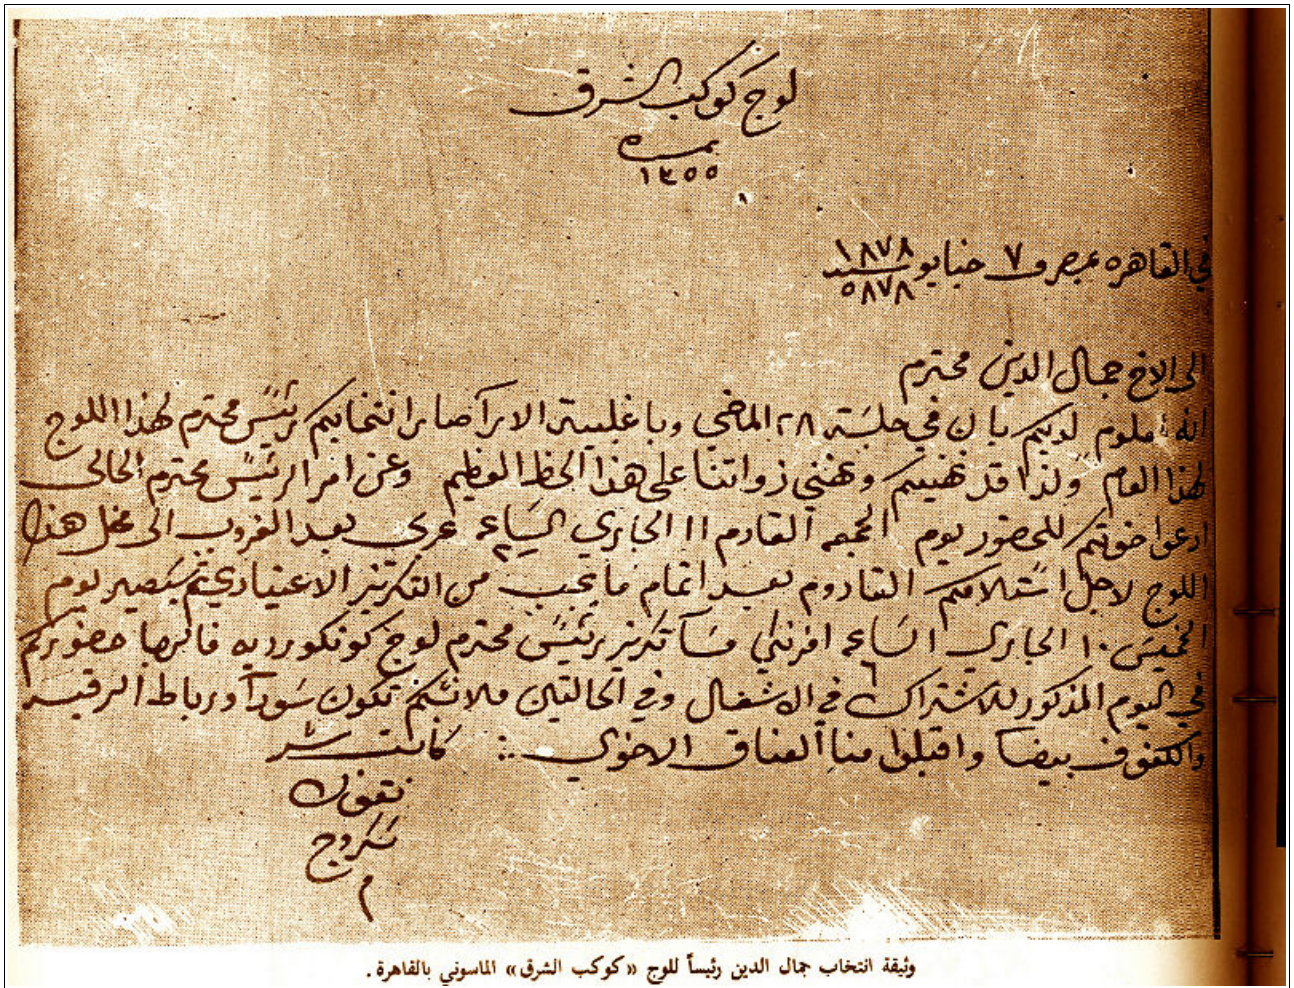 لوج كوكب الشرق
نمره
١٣٥٥
في القاهره بمصر في ٧ جنايو سنة ١٨٧٨ ٥٨٧٨
الى الاخ جمال الدين محترم
انه معلوم لديكم بان في جلسة ٢٨ الماضي وباغلبية الارآ صار انتخابكم رئيس محترم لهذا اللوج
لهذا العام ولذا قد نهنيكم ونهني ذواتنا على هذا الحظ العظيم وعن امر الرئيس محترم الحالي
ادعو اخوتكم للحضور يوم الجمعه القادم ١١ الجاري الساعه ٢ عربي بعد الغروب الى محل هذا
اللوج لاجل استلامكم القادوم بعد اتمام ما يجب من التكريز الاعتيادي ثم سيصير يوم
الخميس ١٠ الجاري الساعه ٦ افرنكي مسآ تكريز رئيس محترم لوج كونكورديه فالرجا حضوركم
في اليوم المذكور للاشتراك في الاشغال وفي الحالتين ملابسكم تكون سودآ ورباط الرقبه
والكفوف بيضا واقبلوا منا العناق الاخوي ∴ كاتب سر
نقولا
سكروج
م
وثيقة انتخاب جمال الدين رئيساً للوج «كوكب الشرق» الماسوني بالقاهرة .